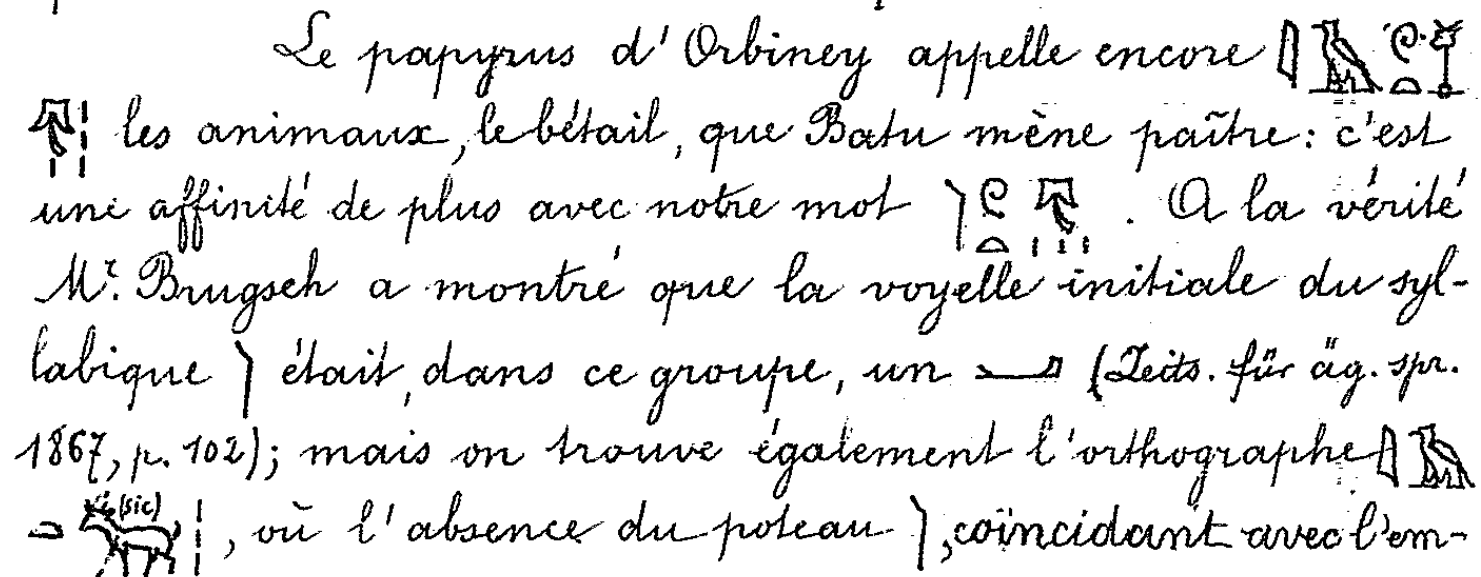 Le papyrus d'Orbiney appelle encore
les animaux, le bétail, que Batu mène paître: c'est
une affinité de plus avec notre mot . A la vérité
Mr. Brugsch a montré que la voyelle initiale du syl-
labique était, dans ce groupe, un (Zeits. für äg. spr.
1867, p. 102); mais on trouve également l'orthographe
(sic) , où l'absence du poteau , coïncidant avec l'em-